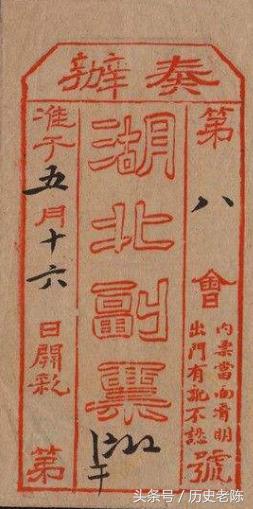 奏辦
第八會
內票當面看明
出門有訛不認
號
湖北副票
准于五月十六日開彩第
头条号 / 历史老陈